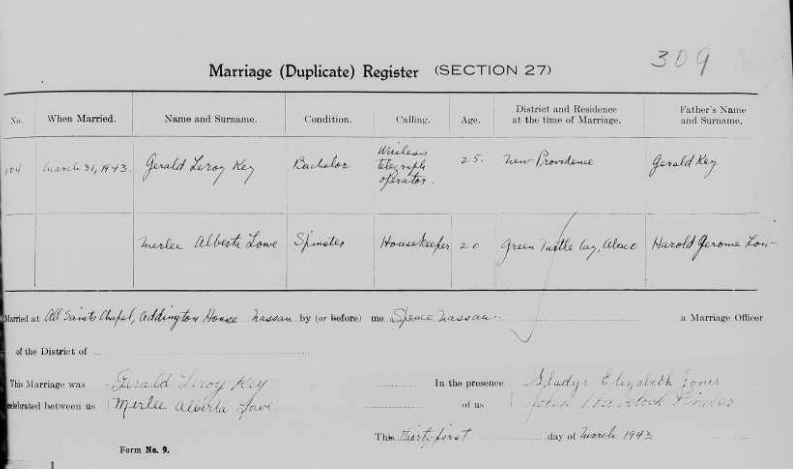 309
Marriage (Duplicate) Register (SECTION 27)
No. When Married. Name and Surname. Condition. Calling. Age. District and Residence at the time of Marriage. Father's Name and Surname.
104 March 31, 1943. Gerald Leroy Key Bachelor Wireless telegraph operator. 25. New Providence Gerald Key
Merlee Alberta Lowe Spinster Housekeeper 20 Green Turtle Cay, Abaco Harold Jerome Low
Married at All Saints Chapel, Addington House Nassau by (or before) me Spence Nassau. a Marriage Officer
of the District of
This Marriage was Gerald Leroy Key In the presence Gladys Elizabeth Jones
celebrated between us Merlee Alberta Lowe of us John
This thirty first day of March 1943
Form No. 9.